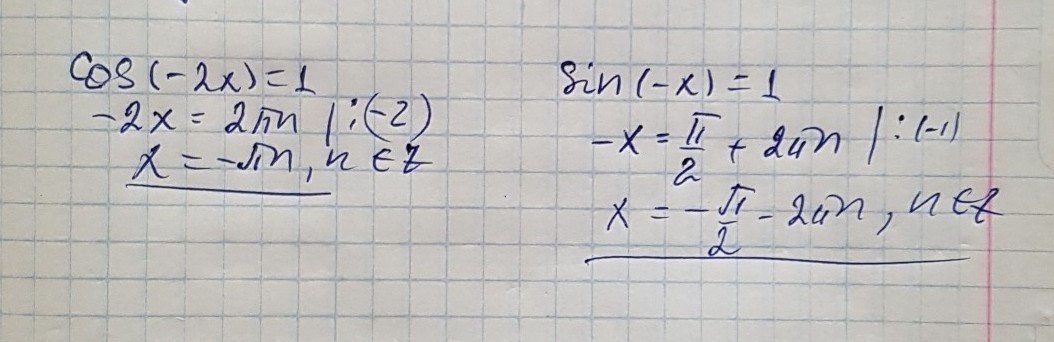 cos(-2x)=1
-2x = 2πn |:(-2)
x = -πn, n ∈ Z
sin(-x) = 1
-x = π/2 + 2πn |:(-1)
x = -π/2 - 2πn, n ∈ Z